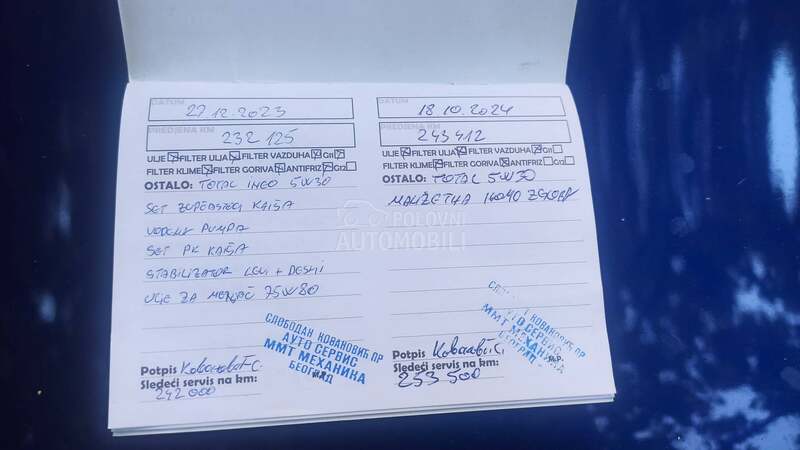 DATUM
27.12.2023
PREDJENA KM
232 125
ULJE FILTER ULJA FILTER VAZDUHA G11
FILTER KLIME FILTER GORIVA ANTIFRIZ G12
OSTALO: TOTAL INEO 5W30
SET ZUPČASTEG KAIŠA
VODENA PUMPA
SET PK KAIŠA
STABILIZATOR LEVI + DESNI
ULJE ZA MENJAČ 75W80
СЛОБОДАН КОВАНОВИЋ ПР
АУТО СЕРВИС
ММТ МЕХАНИКА
БЕОГРАД
Potpis
Sledeći servis na km:
242 000
DATUM
18 10.2024
PREDJENA KM
243 412
ULJE FILTER ULJA FILTER VAZDUHA G11
FILTER KLIME FILTER GORIVA ANTIFRIZ G12
OSTALO: TOTAL 5W30
MANŽETNA
КОВАНОВИЋ ПР
АУТО СЕРВИС
ММТ МЕХАНИКА
БЕОГРАД
Potpis
Sledeći servis na km:
253 500
POLOVNI
AUTOMOBILI